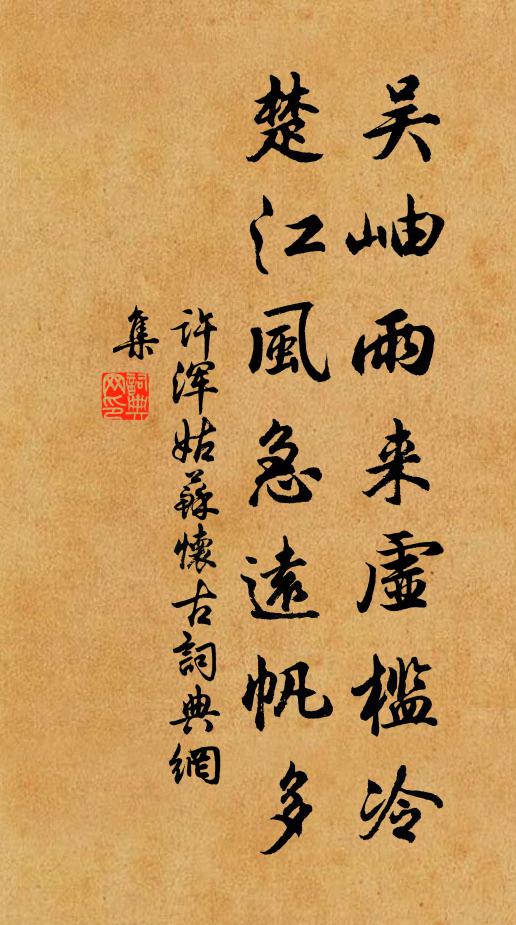 吴岫雨来虚槛冷
楚江風急遠帆多
许渾姑蘇懷古詞典網
集
詞典網印